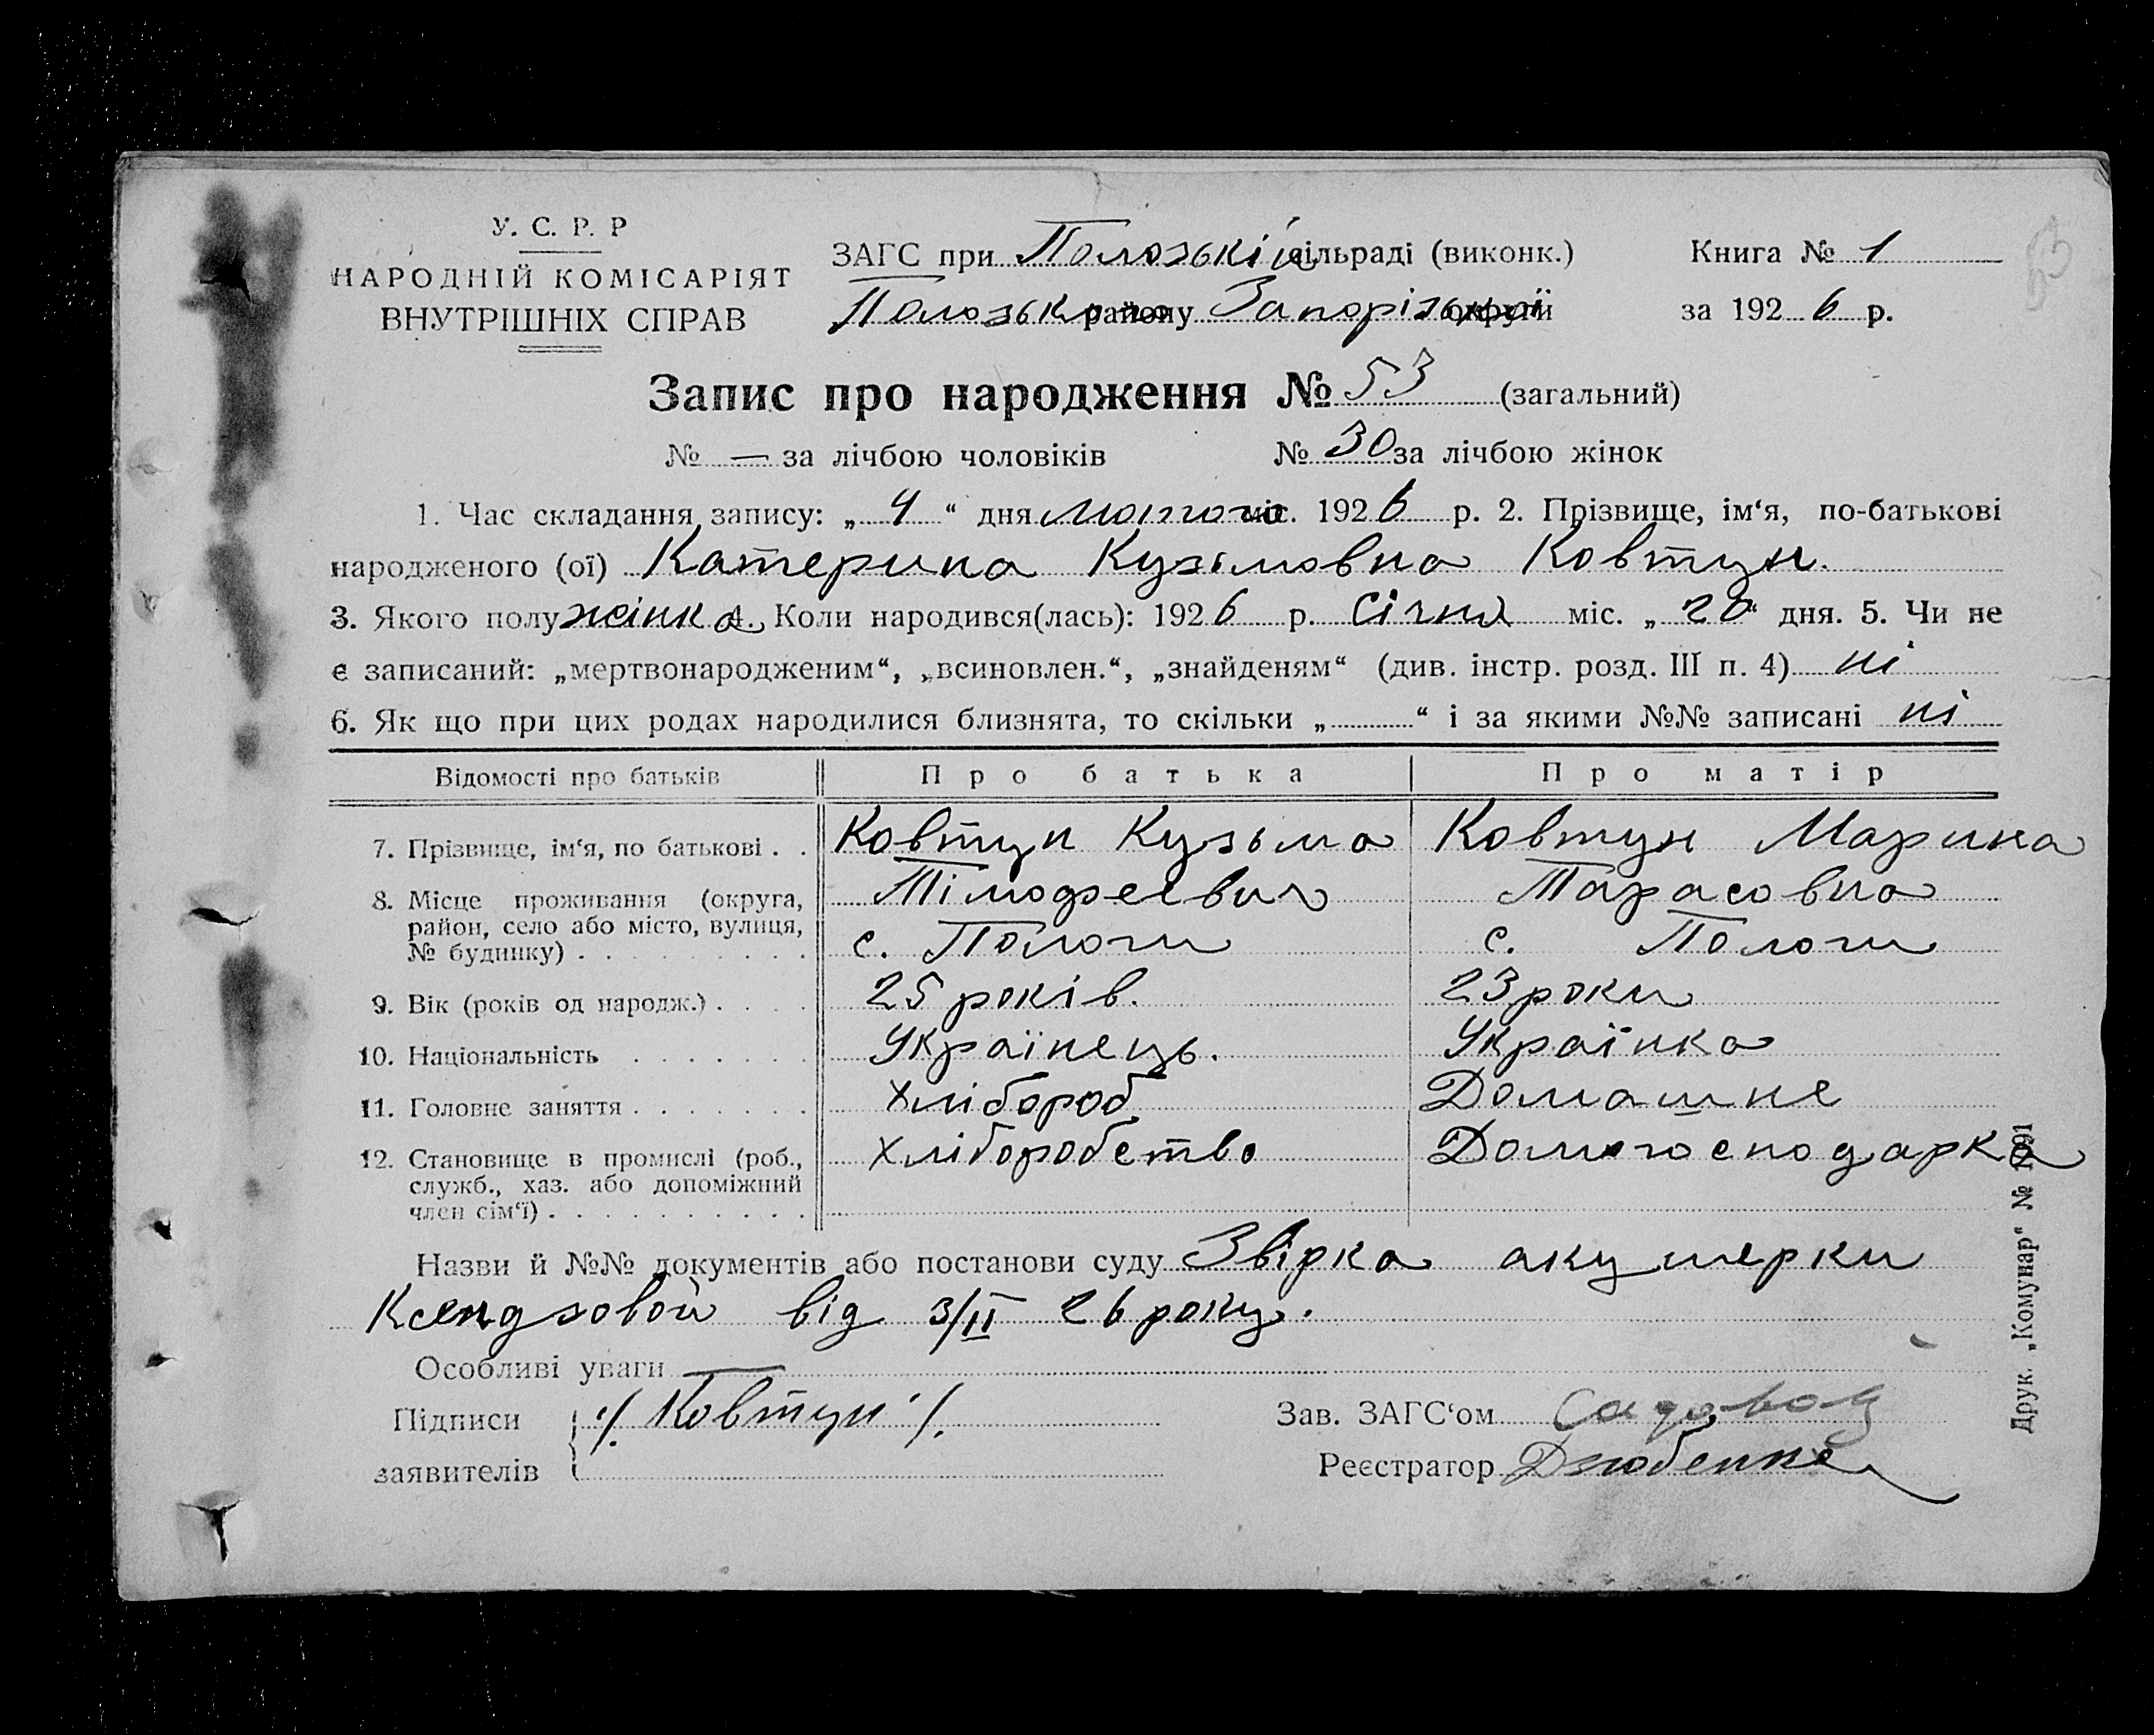 У. С. Р. Р
НАРОДНІЙ КОМІСАРІЯТ
ВНУТРІШНІХ СПРАВ
ЗАГС при Полозькій сільраді (виконк.)
Полозького району Запорізької округи
Книга № 1
за 1926 р.
53
Запис про народження № 53 (загальний)
№ — за лічбою чоловіків № 30 за лічбою жінок
1. Час складання запису: „ 4 “ дня лютого міс. 1926 р. 2. Прізвище, ім‘я, по-батькові
народженого (ої) Катерина Кузьмовна Ковтун.
3. Якого полу жінка 4. Коли народився(лась): 1926 р. Січня міс. „ 20 “ дня. 5. Чи не
є записаний: „мертвонародженим“, „всиновлен.“, „знайденям“ (див. інстр. розд. III п. 4) ні
6. Як що при цих родах народилися близнята, то скільки „ “ і за якими №№ записані ні
Відомості про батьків Про батька Про матір
7. Прізвище, ім‘я, по батькові . . Ковтун Кузьма Ковтун Марина
Тімофеевич Тарасовна
8. Місце проживання (округа,
район, село або місто, вулиця,
№ будинку) . . . . . . . . . с. Пологи с. Пологи
9. Вік (років од народж.) . . . . 25 років. 23 роки
10. Національність . . . . . . . Українець. Українка
11. Головне заняття . . . . . . . Хлібороб Домашне
12. Становище в промислі (роб.,
служб., хаз. або допоміжний
член сім‘ї) . . . . . . . . . . Хліборобство Домогосподарка
Назви й №№ документів або постанови суду Звірка акушерки
Ксендзовой від 3/II 26 року.
Особливі уваги —
Підписи
заявителів /. Ковтун /.
Зав. ЗАГС‘ом Садовой
Реєстратор Дзюбенко
Друк. „Комунар“ № 1091